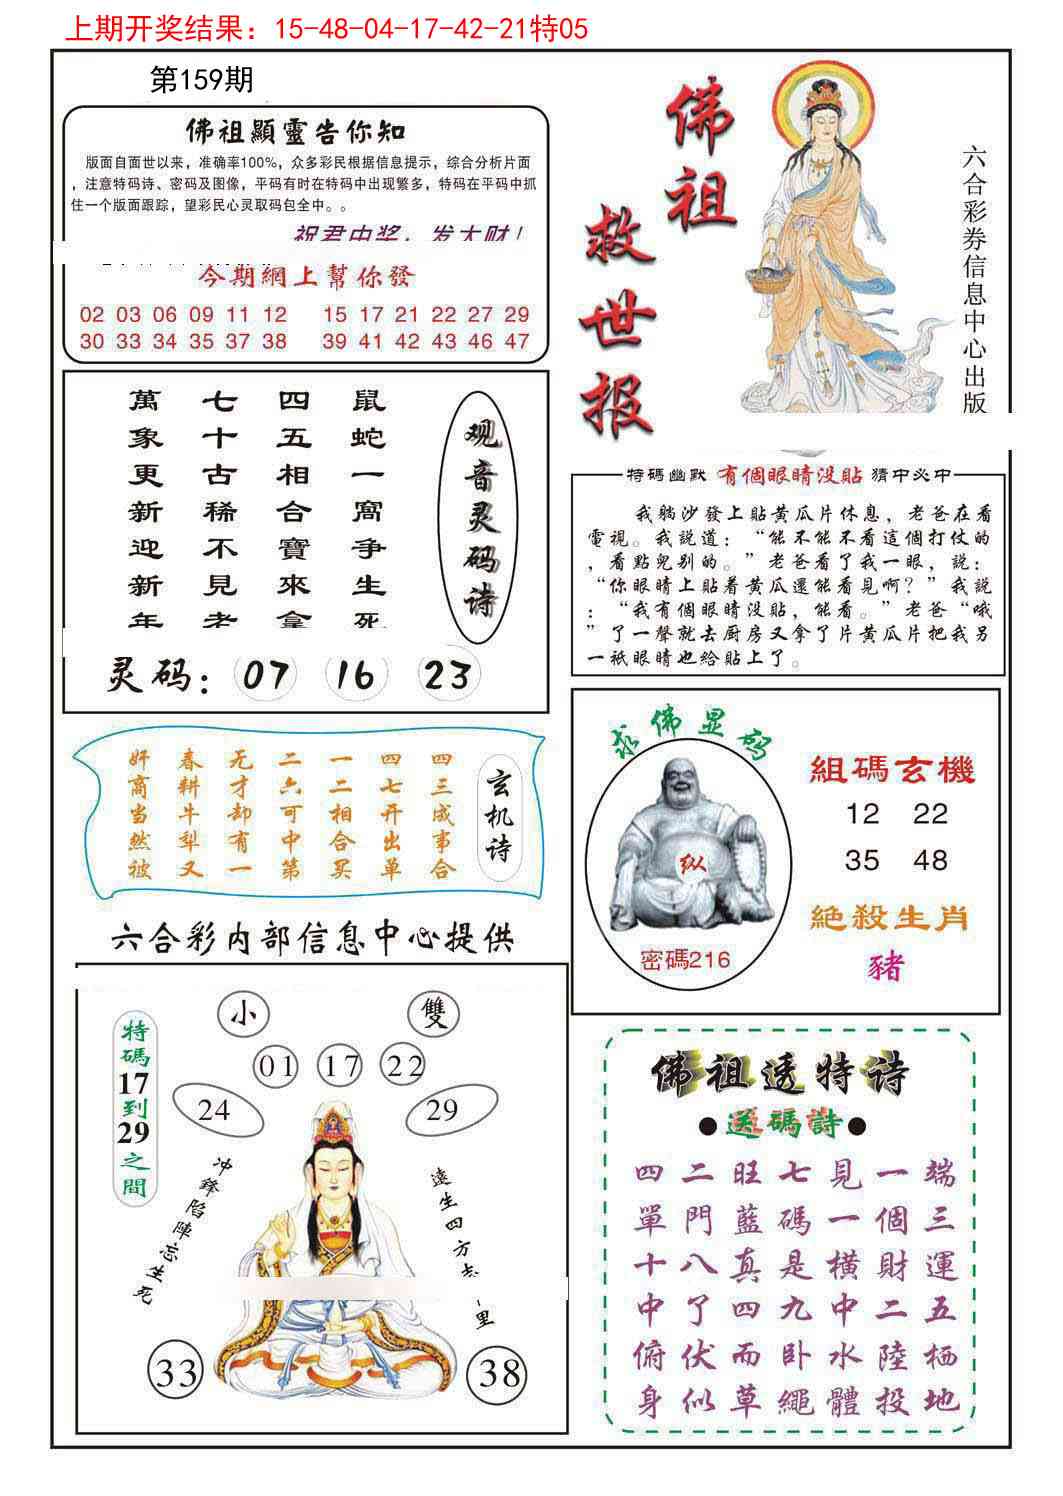 上期开奖结果：15-48-04-17-42-21特05
第159期
佛祖顯靈告你知
版面自面世以来，准确率100%，众多彩民根据信息提示，综合分析片面
，注意特码诗、密码及图像，平码有时在特码中出现繁多，特码在平码中抓
住一个版面跟踪，望彩民心灵取码包全中。。
祝君中奖，发大财！
今期網上幫你發
02 03 06 09 11 12 15 17 21 22 27 29
30 33 34 35 37 38 39 41 42 43 46 47
佛祖
救世报
六合彩券信息中心出版
鼠蛇一窩争生死
四五相合寶來拿
七十古稀不見老
萬象更新迎新年
观音灵码诗
灵码：07 16 23
特碼幽默 有個眼睛没貼 猜中必中
我躺沙發上貼黄瓜片休息，老爸在看
電視。我説道：“能不能不看這個打仗的
，看點兒别的。”老爸看了我一眼，説：
“你眼睛上貼着黄瓜還能看見啊？”我説
：“我有個眼睛没貼，能看。”老爸“哦
”了一聲就去厨房又拿了片黄瓜片把我另
一衹眼睛也給貼上了。
玄机诗
四三成事合
四七开出单
一二相合买
二六可中第
无才却有一
春耕牛犁又
奸商当然被
求佛显码
纵
密碼216
組碼玄機
12 22
35 48
絶殺生肖
豬
六合彩内部信息中心提供
小 雙
01 17 22
24 29
特碼17到29之間
冲鋒陷陣忘生死
遠生四方志
里
33 38
佛祖透特诗
●送碼詩●
四二旺七見一端
單門藍碼一個三
十八真是横財運
中了四九中二五
俯伏而卧水陸栖
身似草繩體投地